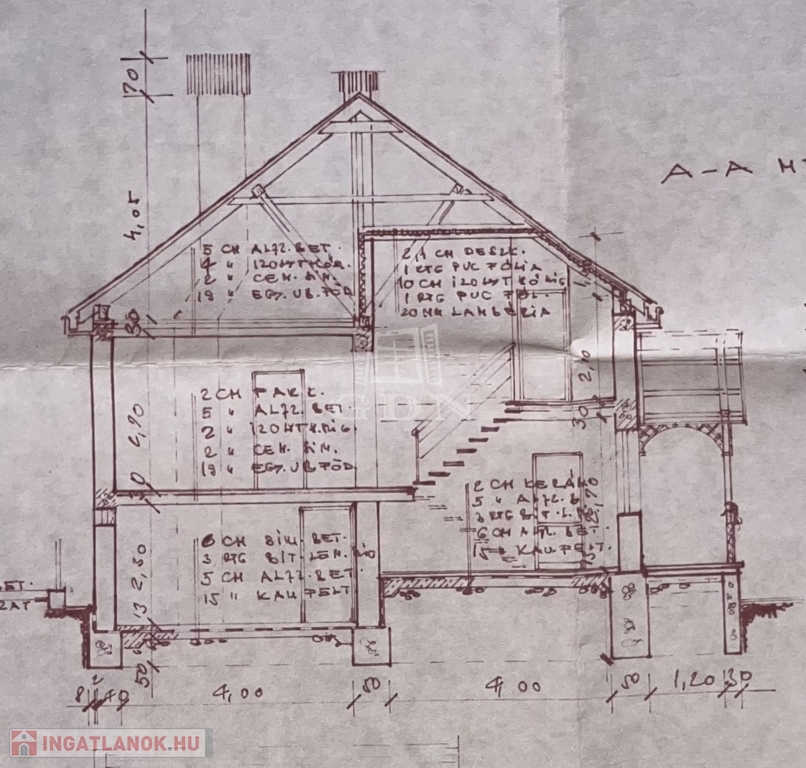 70
A-A
4,05
5 CM ALJZ. BET.
4 " IZOLYT KŐR.
2 " CEM. SIM.
19 " EGY. UB. FÖD
2,4 CM DESZK.
1 RTG PVC FÓLIA
10 CM IZOLYT KÖNIG
1 RTG PVC FÓL.
20 MM LAMBÉRIA
30
2,10
30
GDN
2 CM PARK.
5 " ALJZ. BET.
2 " IZOLYT KÖNIG
2 " CEM. SIM.
19 " EGY. UB. FÖD
2,90
30
2 CM KERÁM
5 " ALJZ. B
3 RTG BIT. L.
6 CM ALJZ. BET.
15 " KAV. FELT.
6 CM SIM. BET.
3 RTG BIT. LEM.
5 CM ALJZ. BET
15 " KAV. FELT
2,30
13
50
BET.
ZAT
8 2 40 4,00 50 4,00 50 1,20 30
INGATLANOK.HU